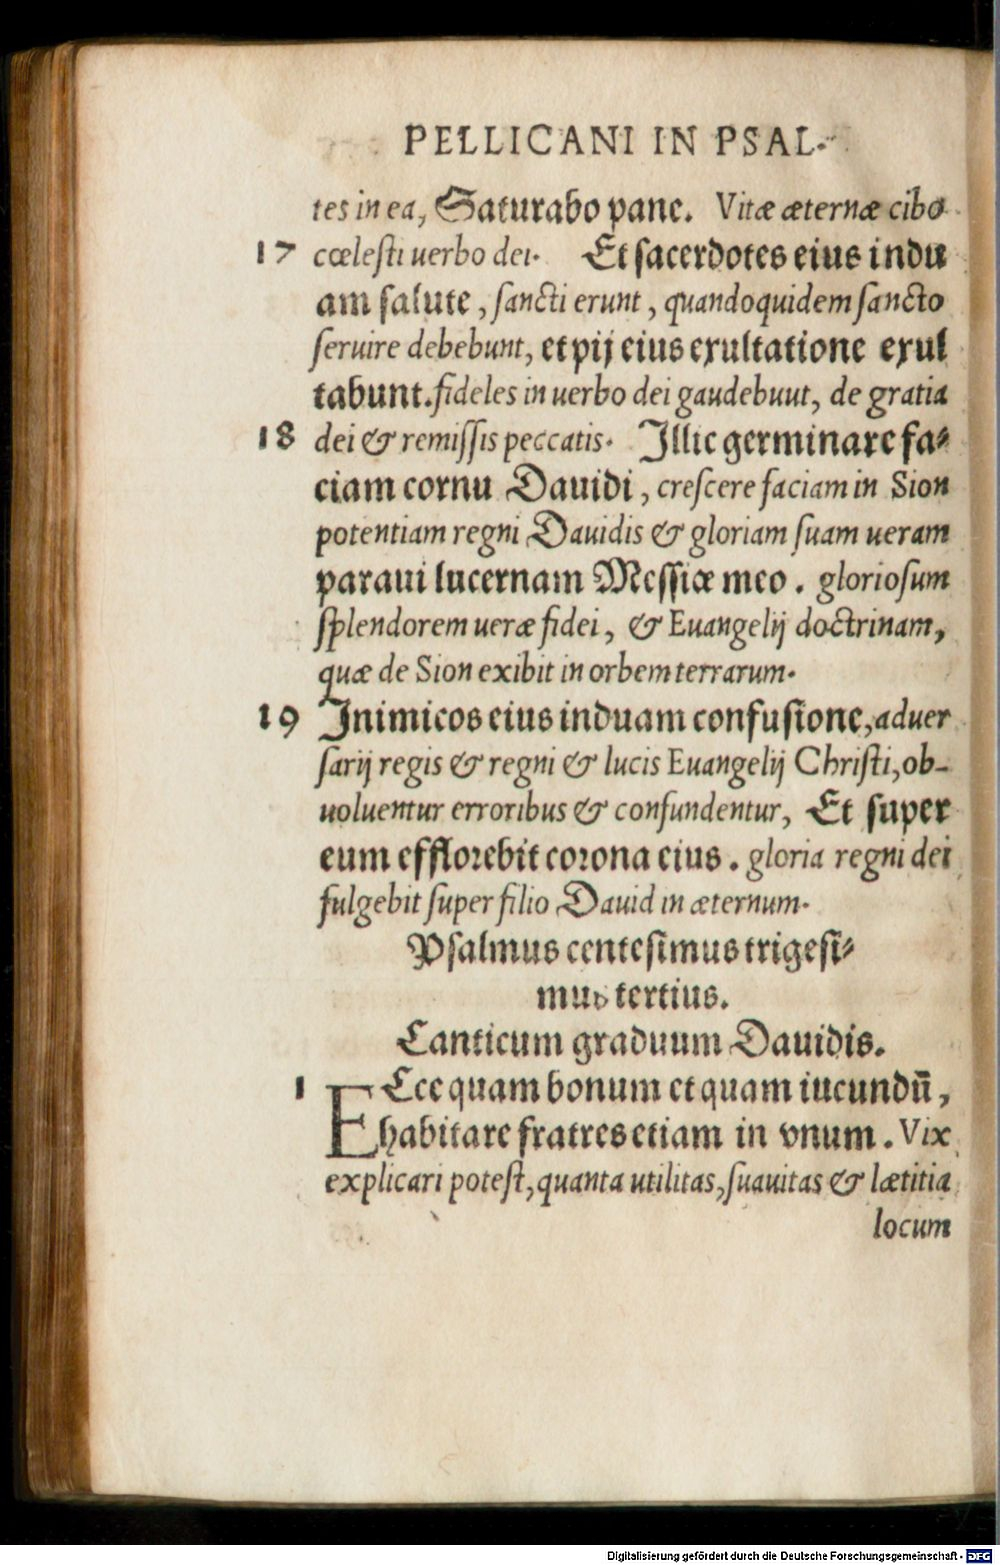 PELLICANI IN PSAL.
tes in ea, Saturabo pane. Vitæ æternæ cibo
17 cœlesti uerbo dei. Et sacerdotes eius indu
am salute, sancti erunt, quandoquidem sancto
seruire debebunt, et pij eius exultatione exul
tabunt. fideles in uerbo dei gaudebuut, de gratia
18 dei & remissis peccatis. Illic germinare fa⸗
ciam cornu Dauidi, crescere faciam in Sion
potentiam regni Dauidis & gloriam suam ueram
paraui lucernam Messiæ meo. gloriosum
splendorem ueræ fidei, & Euangelij doctrinam,
quæ de Sion exibit in orbem terrarum.
19 Inimicos eius induam confusione, aduer
sarij regis & regni & lucis Euangelij Christi, ob-
uoluentur erroribus & confundentur, Et super
eum efflorebit corona eius. gloria regni dei
fulgebit super filio Dauid in æternum.
Psalmus centesimus trigesi⸗
mus tertius.
Canticum graduum Dauidis.
1 ECce quam bonum et quam iucundū,
habitare fratres etiam in vnum. Vix
explicari potest, quanta utilitas, suauitas & lætitia
locum
Digitalisierung gefördert durch die Deutsche Forschungsgemeinschaft - DFG